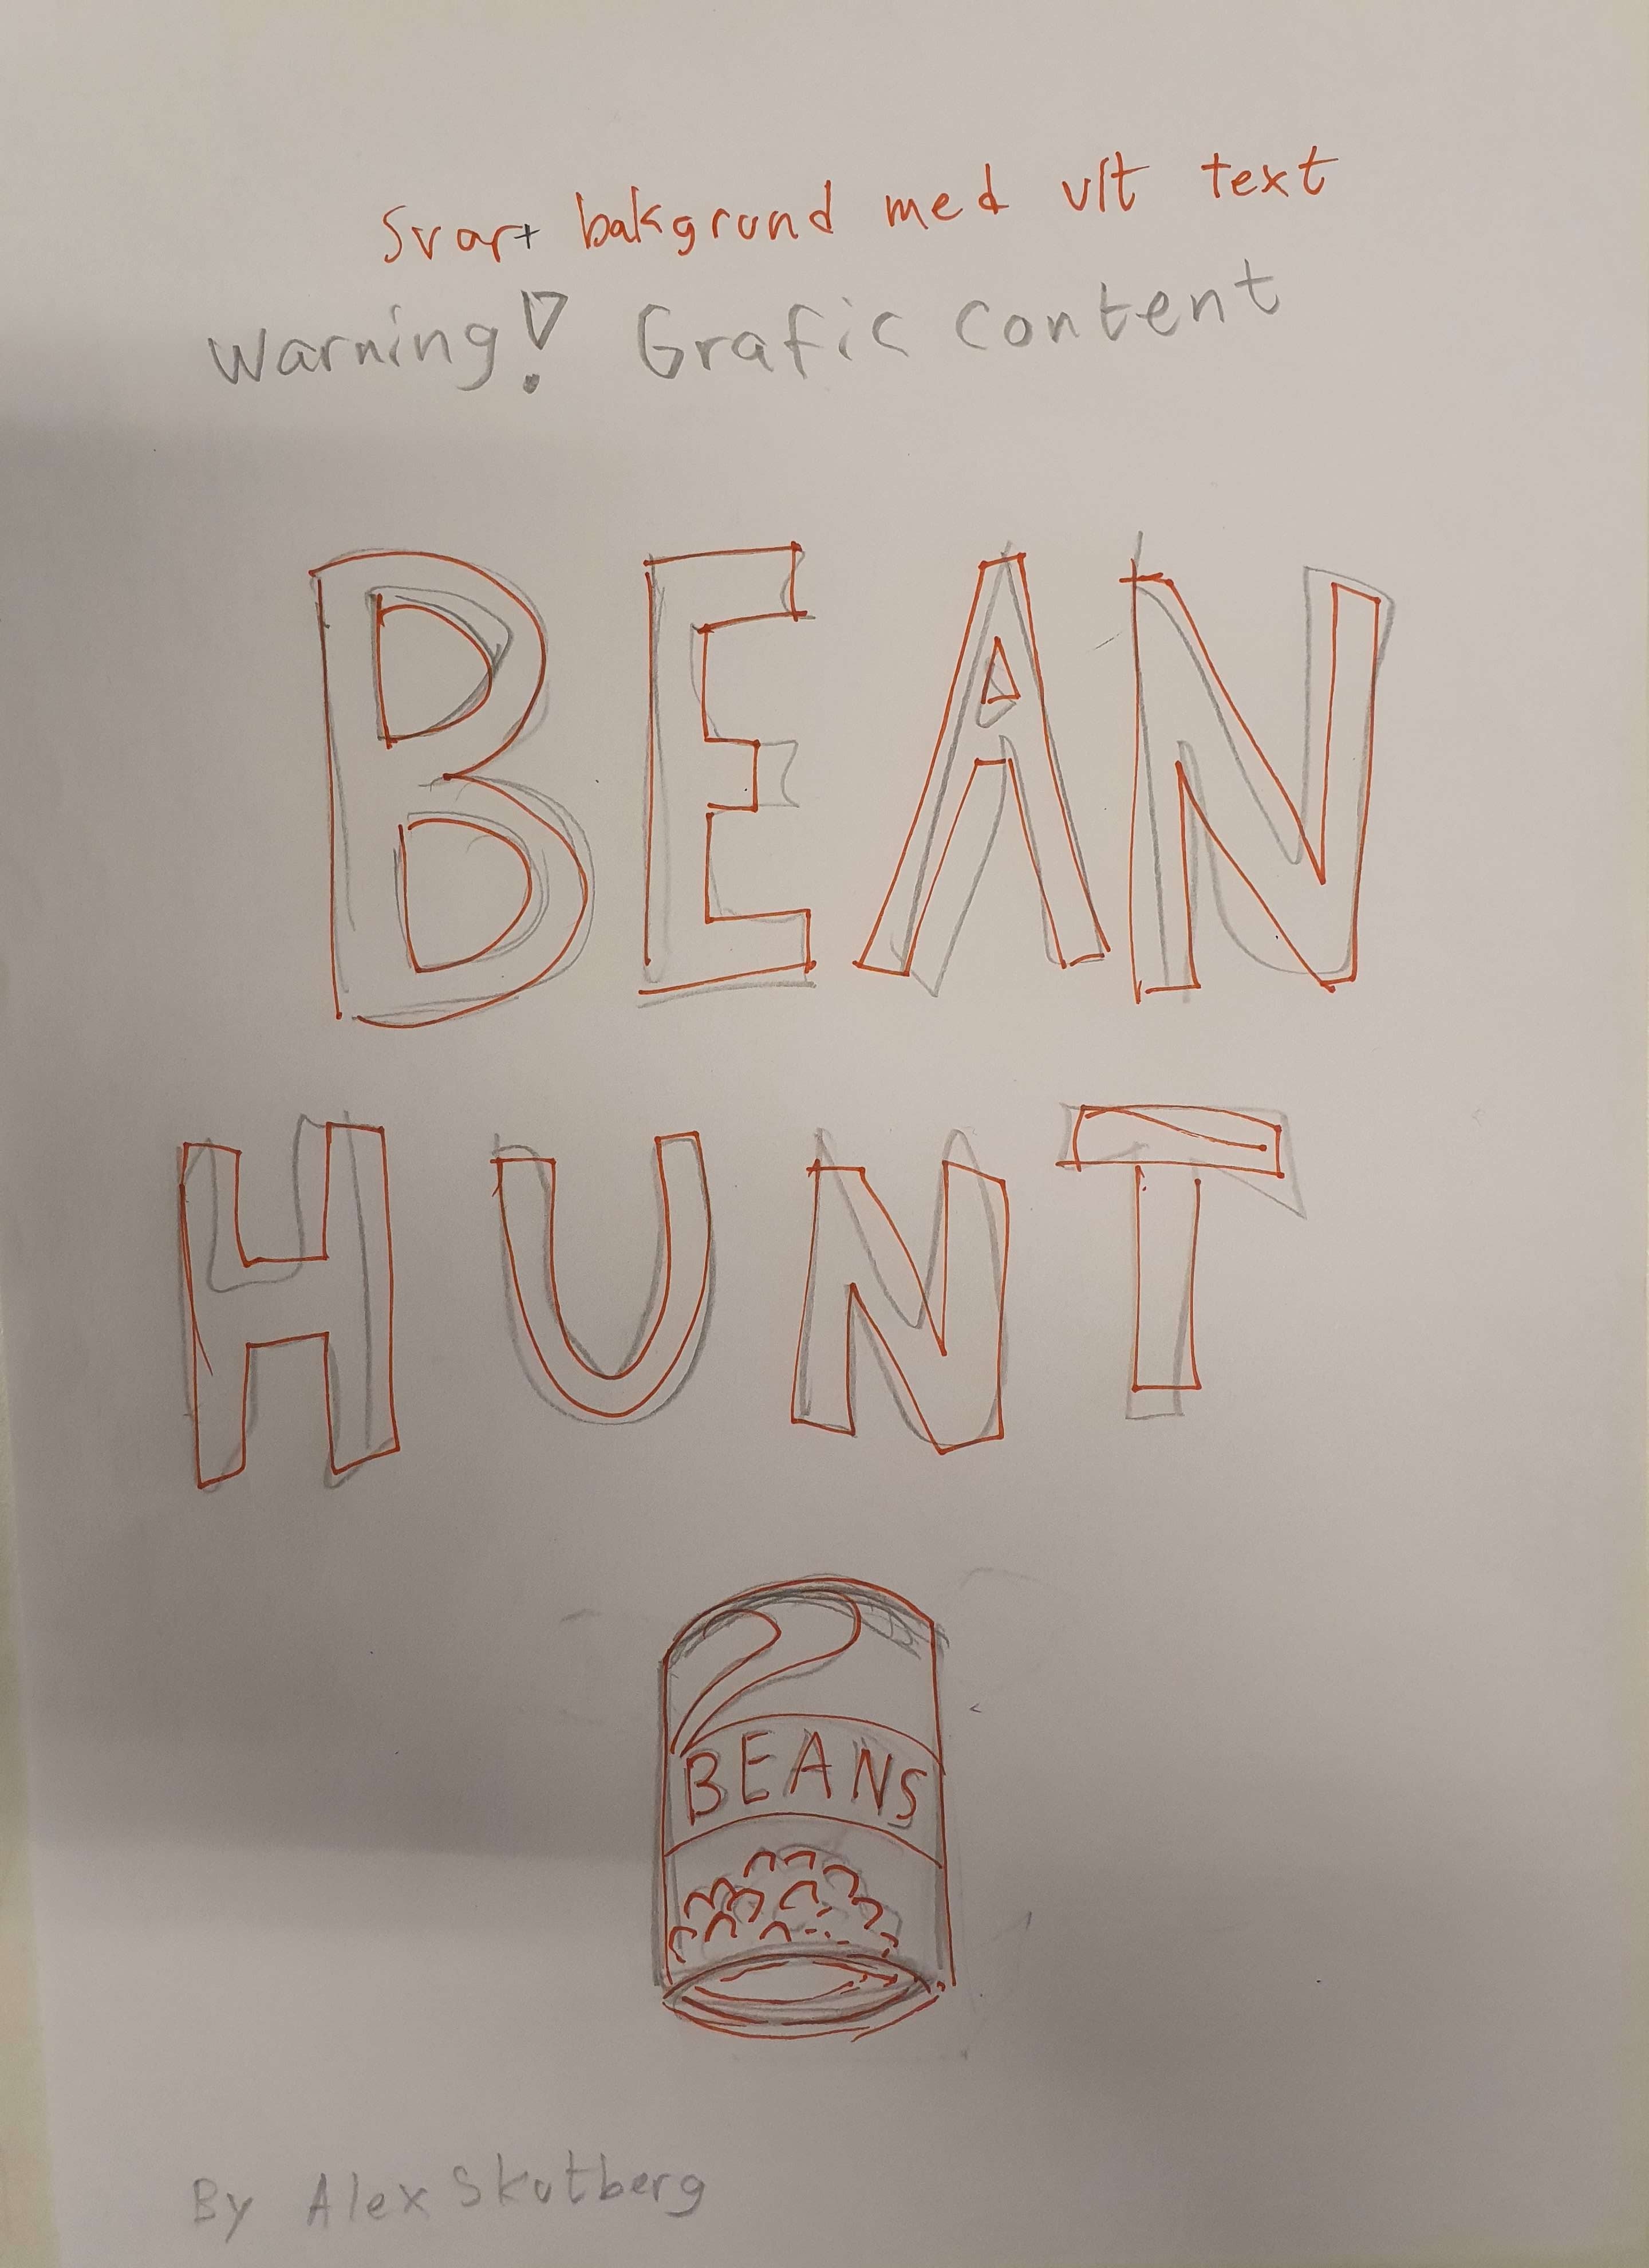 Svart bakgrund med vit text
Warning! Grafic content
BEAN
HUNT
BEANS
By Alex Skutberg